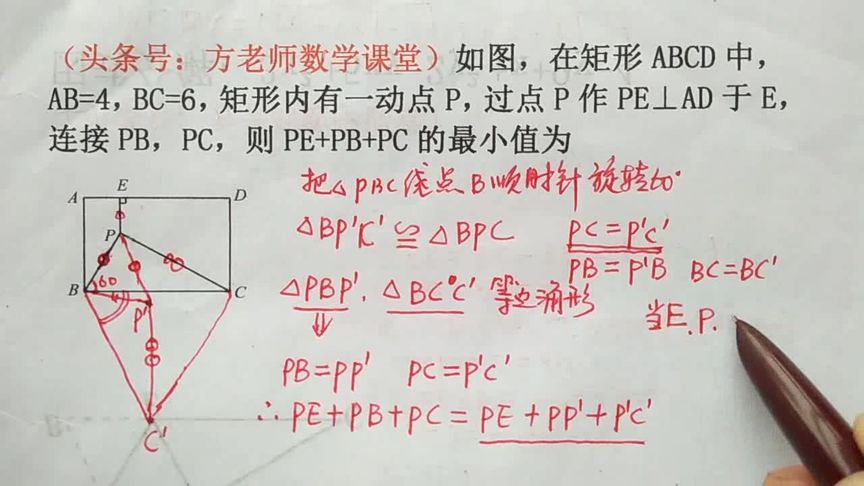 （头条号：方老师数学课堂）如图，在矩形 ABCD 中，
AB=4，BC=6，矩形内有一动点 P，过点 P 作 PE⊥AD 于 E，
连接 PB，PC，则 PE+PB+PC 的最小值为
把△PBC绕点B顺时针旋转60°
△BP'C'≌△BPC PC=P'C'
PB=P'B BC=BC'
△PBP'. △BCC' 等边三角形
当E.P.
⇓
PB=PP' PC=P'C'
∴PE+PB+PC=PE+PP'+P'C'
E
A D
P
60
B C
P'
C'